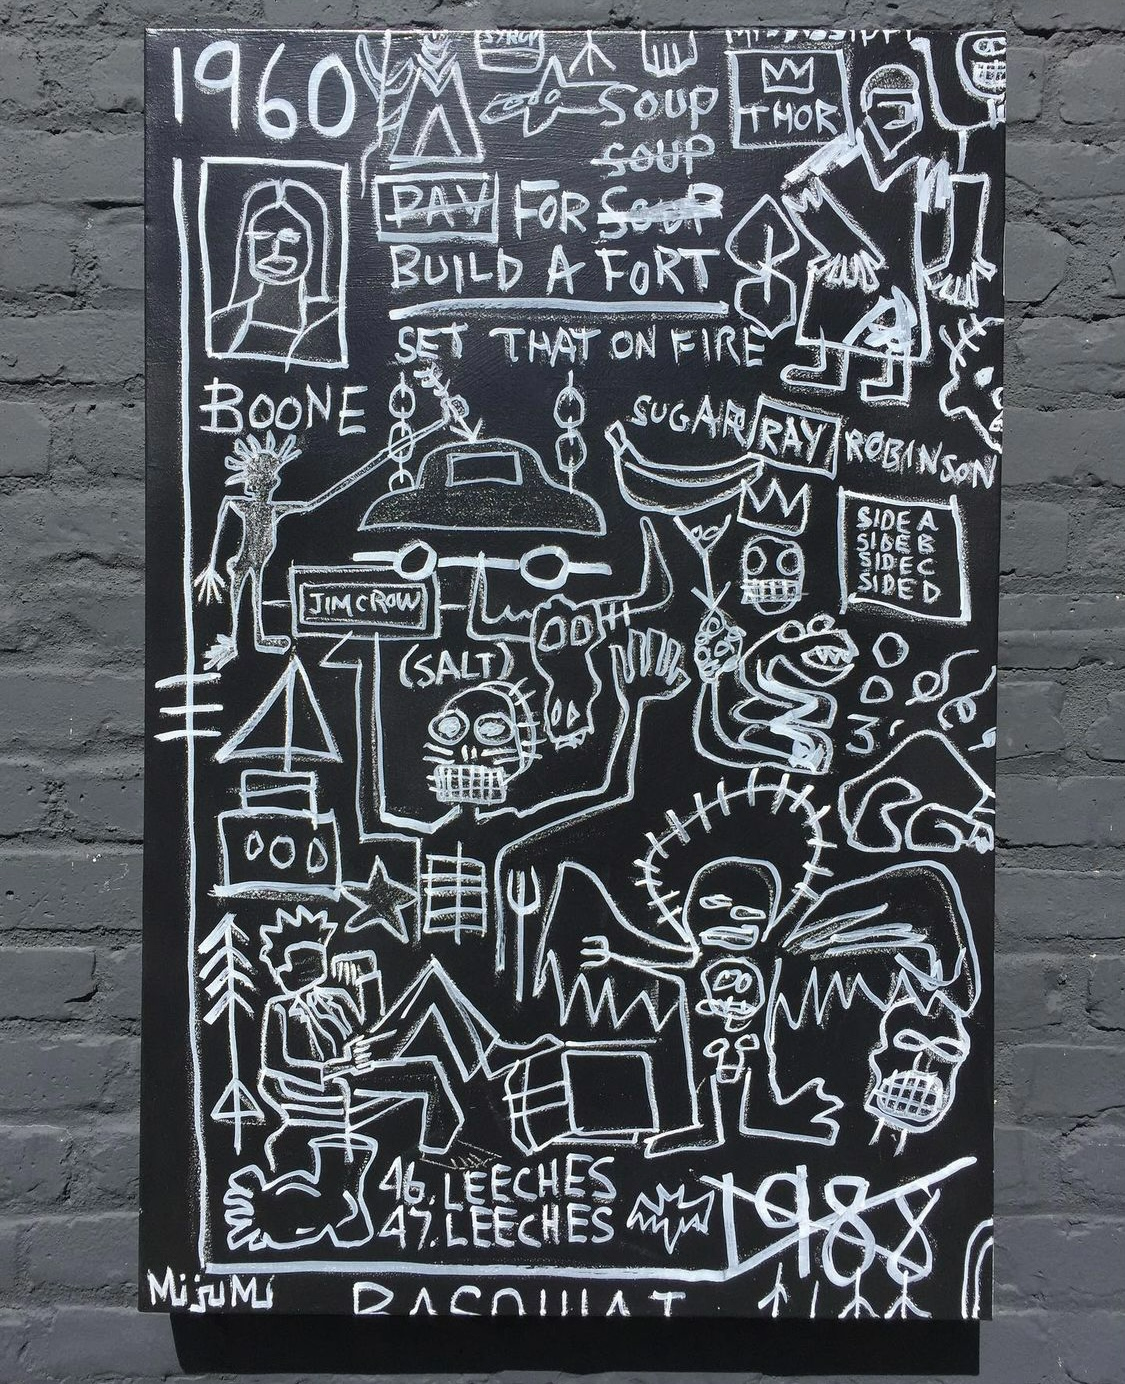 1960
SYRUP
MISSISSIPPI
SOUP
THOR
SOUP
PAY FOR SOUP
BUILD A FORT
SET THAT ON FIRE
BOONE
SUGAR RAY ROBINSON
SIDE A
SIDE B
SIDE C
SIDE D
JIM CROW
(SALT)
46. LEECHES
47. LEECHES
1988
MijuMi
BASQUIAT